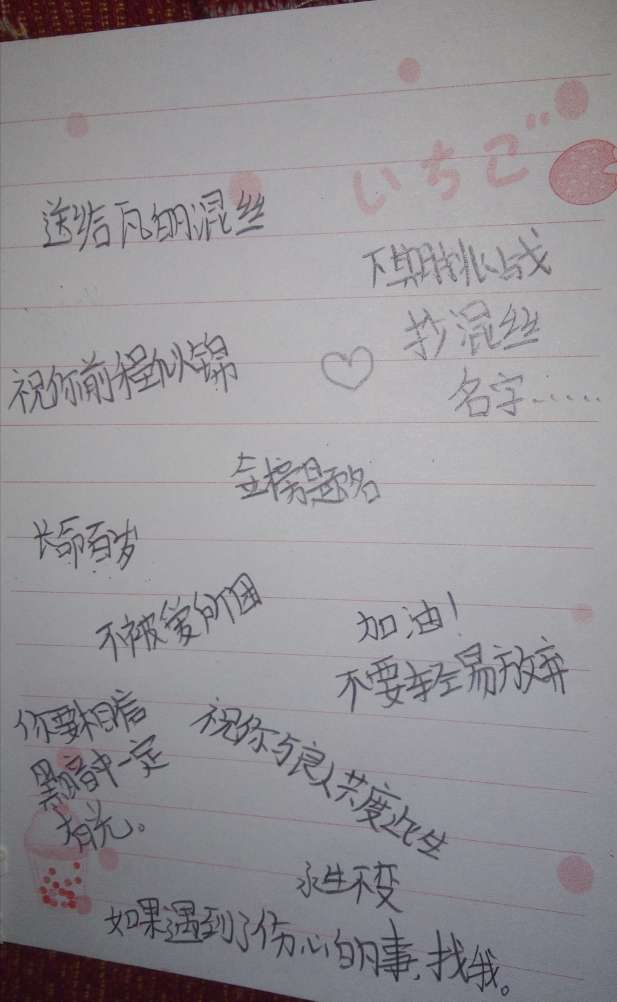 いちご
送给瓦的混丝
下期挑战
抄混丝
名字......
祝你前程似锦
金榜题名
长命百岁
不被爱所困
加油!
不要轻易放弃
你要相信
黑暗中一定
有光。
祝你与良人共度此生
永生不变
如果遇到了伤心的事,找我。